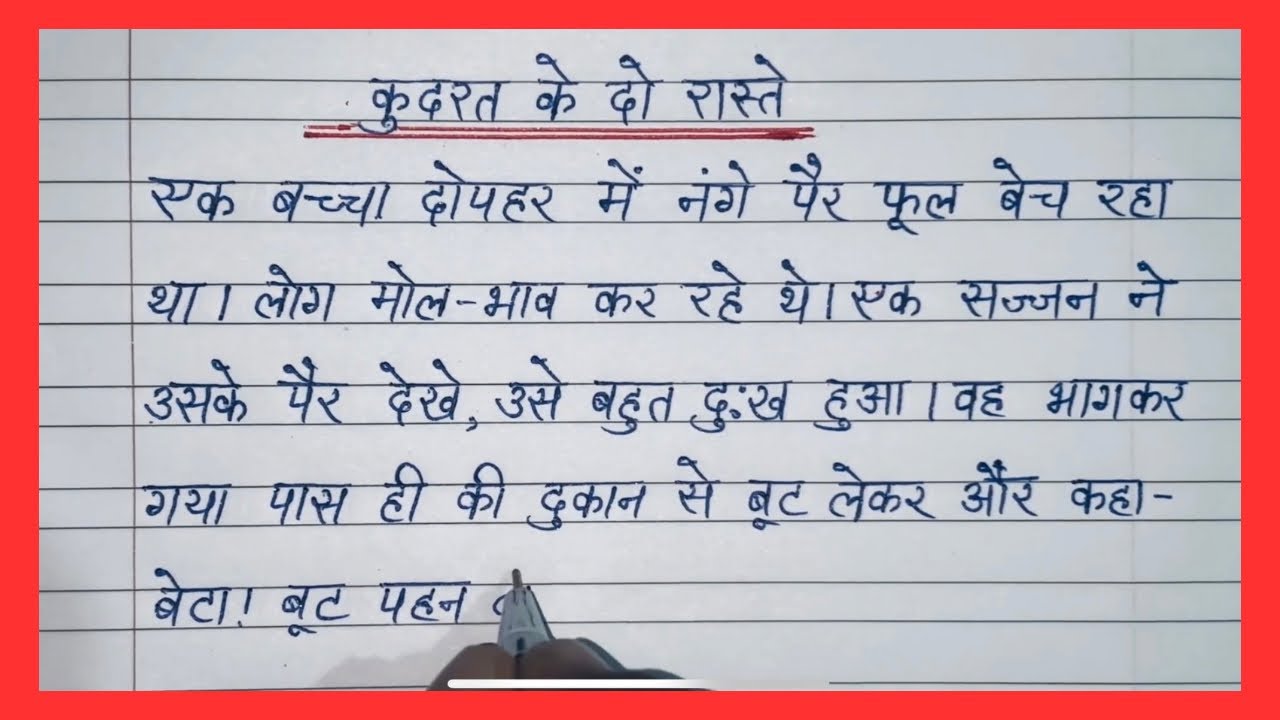 कुदरत के दो रास्ते
एक बच्चा दोपहर में नंगे पैर फूल बेच रहा
था। लोग मोल-भाव कर रहे थे। एक सज्जन ने
उसके पैर देखे, उसे बहुत दुःख हुआ। वह भागकर
गया पास ही की दुकान से बूट लेकर और कहा-
बेटा! बूट पहन